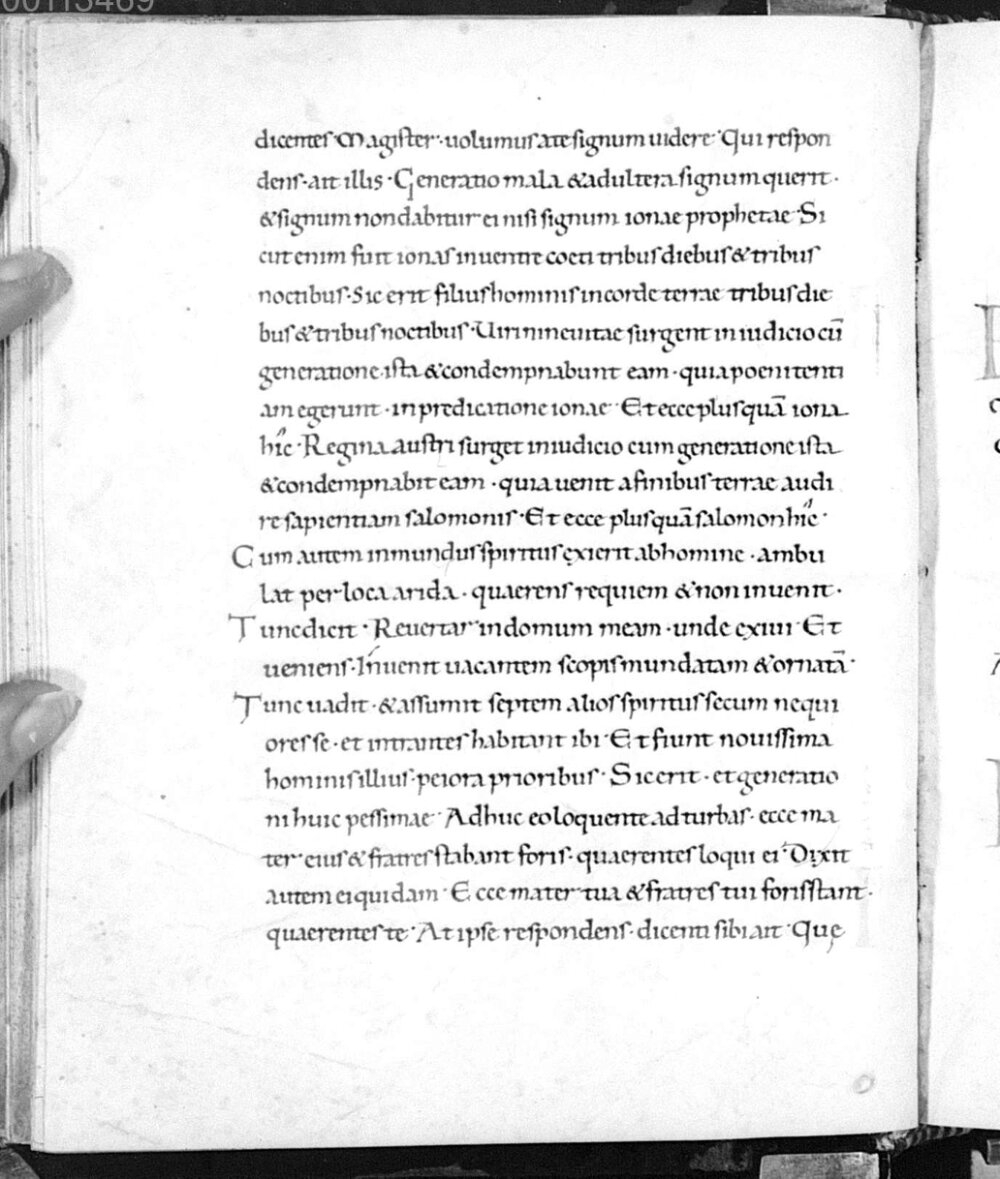 00113469
dicentes· Magister· uolumus ate signum uidere· Qui respon
dens· ait illis· Generatio mala & adultera signum querit·
& signum non dabitur ei nisi signum ionae prophetae· Si
cut enim fuit ionas inuentre coeti tribus diebus & tribus
noctibus· Sic erit filius hominis in corde terrae tribus die
bus & tribus noctibus· Uiri nineuitae surgent in iudicio cū
generatione ista & condempnabunt eam· quia poenitenti
am egerunt· in predicatione ionae· Et ecce plusquā iona
hic· Regina austri surget in iudicio cum generatione ista
& condempnabit eam· quia uenit a finibus terrae audi
re sapientiam salomonis· Et ecce plusquā salomon hic·
Cum autem inmundus spiritus exierit ab homine· ambu
lat per loca arida· quaerens requiem & non inuenit·
Tunc dicit· Reuertar in domum meam· unde exiui· Et
ueniens· Inuenit uacantem scopis mundatam & ornatā·
Tunc uadit· & assumit septem alios spiritus secum nequi
ores se· et intrantes habitant ibi· Et fiunt nouissima
hominis illius· peiora prioribus· Sic erit· et generatio
ni huic pessimae· Adhuc eo loquente ad turbas· ecce ma
ter· eius & fratres stabant foris· quaerentes loqui ei· Dixit
autem ei quidam· Ecce mater tua & fratres tui foris stant·
quaerentes te· At ipse respondens· dicenti sibi ait· Quę